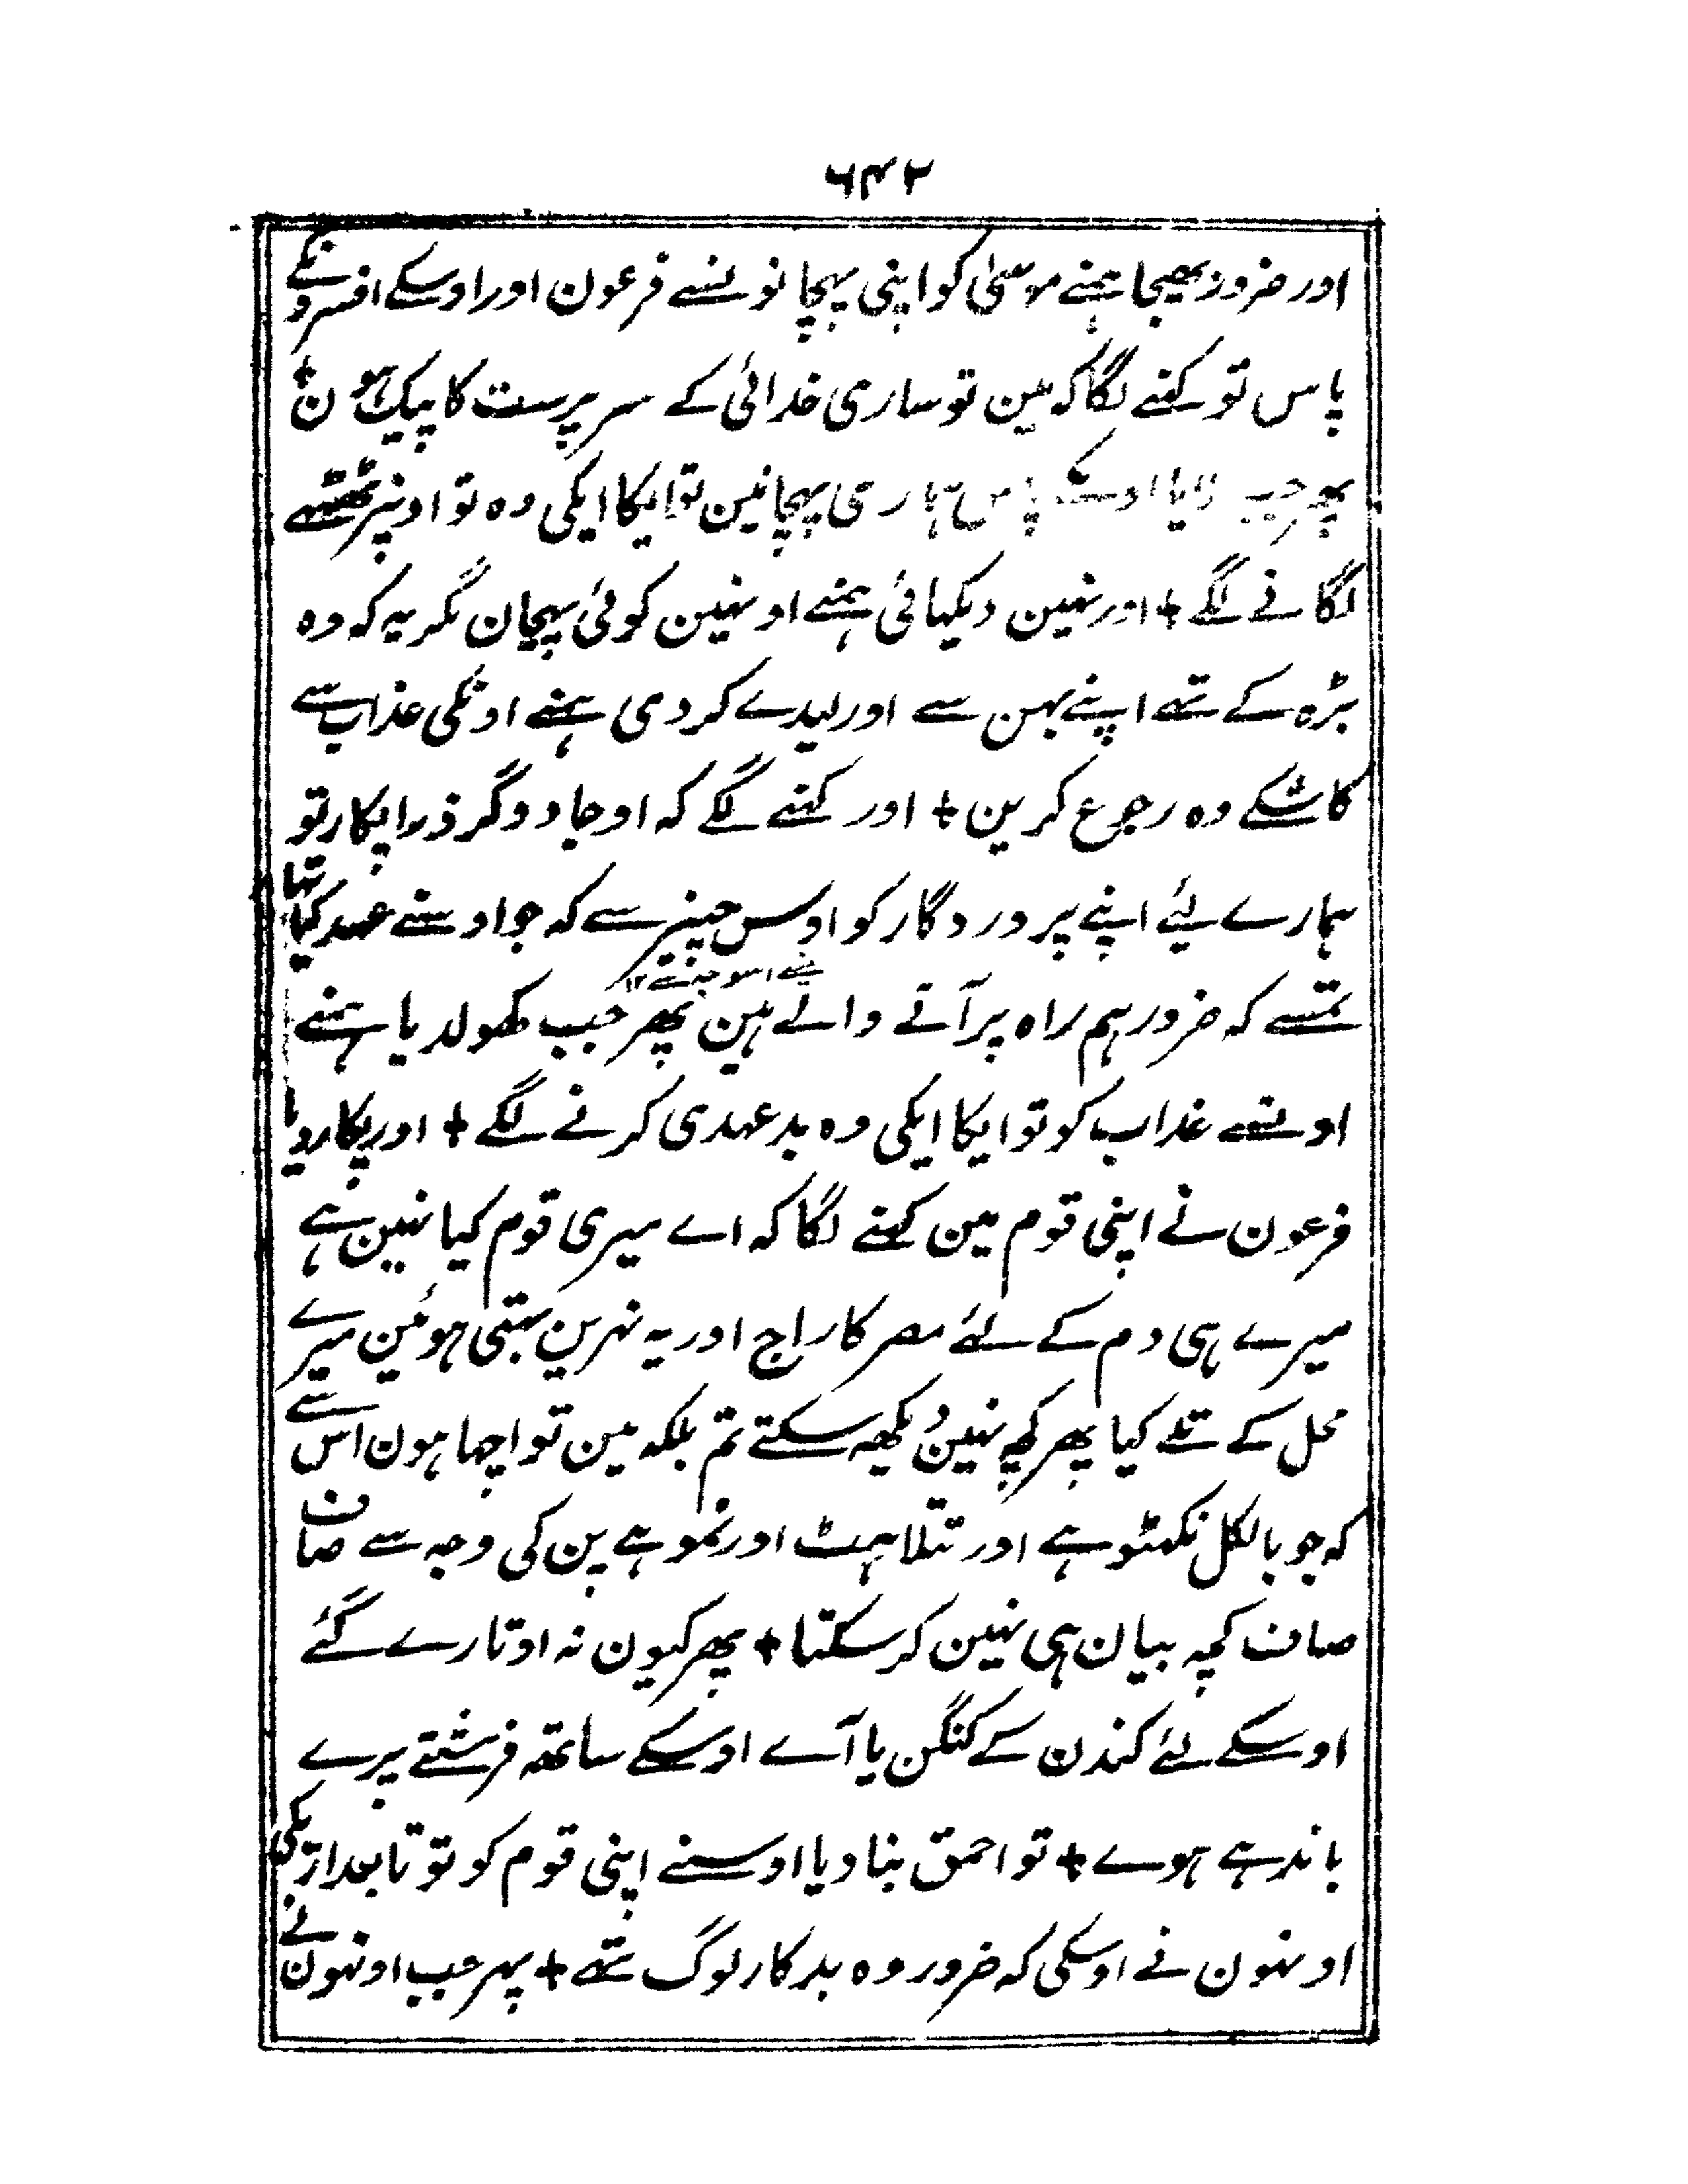 ۶۴۲
اور ضرور بھیجا ہمنے موسیٰ کو اپنی پہچانونسے فرعون اور اوسکے افسرونکے
پاس تو کہنے لگا کہ مین تو ساری خدائی کے سرپرست کا پیک ہون +
پھر جب لایا اونکے پاس ہماری پہچانین تو ایکا ایکی وہ تو اونپر ٹھٹھے
لگانے لگے + اور نہین دیکہائی ہمنے اونہین کوئی پہچان مگر یہ کہ وہ
بڑہ کے تھے اپنے بہن سے اور لیدے کر دی ہمنے اونکی عذاب سے
کاشکے وہ رجوع کرین + اور کہنے لگے کہ او جادوگر ذرا پکار تو
ہمارے لیئے اپنے پروردگار کو اوس چیز سے کہ جو اوسنے عہد کیا تہا
تمسے کہ ضرور ہم راہ پر آنے والے ہین پھر جب کھولدیا ہمنے
اونسے عذاب کو تو ایکا ایکی وہ بدعہدی کرنے لگے + اور پکار دیا
فرعون نے اپنی قوم مین کہنے لگا کہ اے میری قوم کیا نہین ہے
میرے ہی دم کے لئے مصر کا راج اور یہ نہرین بہتی ہوئین میرے
محل کے تلے کیا پھر کچہ نہین دیکھہ سکتے تم بلکہ مین تو اچہا ہون اس سے
کہ جو بالکل نکہٹو ہے اور تتلاہٹ اور نموہے پن کی وجہ سے صاف
صاف کچہ بیان ہی نہین کر سکتا + پھر کیون نہ اوتارے گئے
اوسکے لئے کندن کے کنگن یا آے اوسکے ساتھہ فرشتے پرے
باندہے ہوے + تو احمق بنا دیا اوسنے اپنی قوم کو تو تابعداری کی
اونہون نے اوسکی کہ ضرور وہ بدکار لوگ تھے + پہر جب اونہون نے